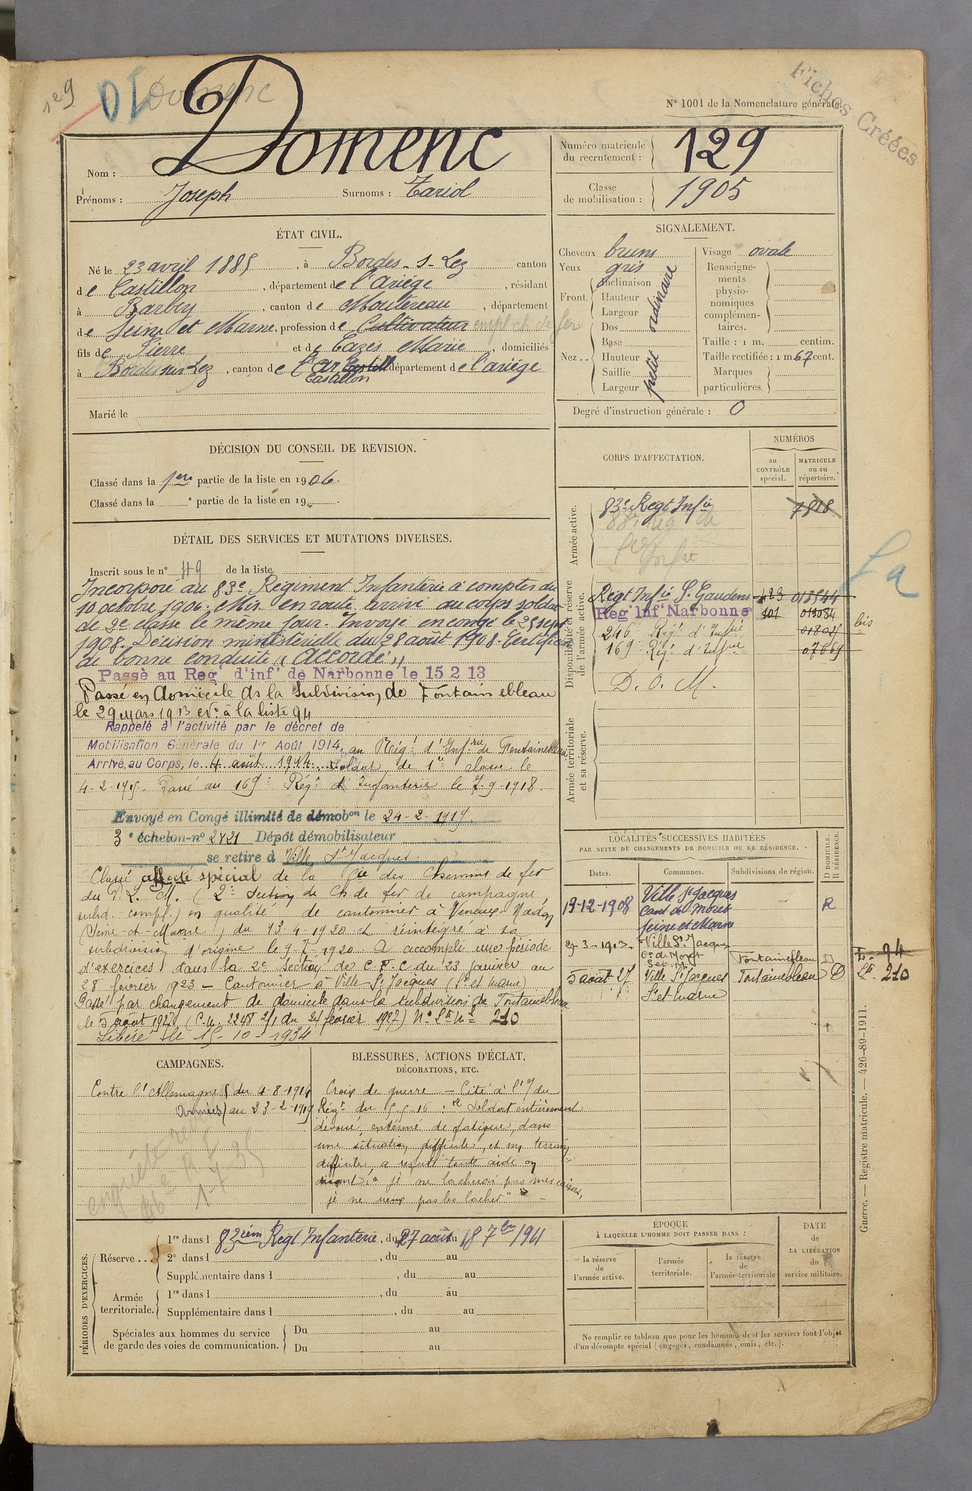 129
Domenc
N° 1001 de la Nomenclature générale.
Fiches Créées
Nom : Domenc
Prénoms : Joseph Surnoms : Tariol
Numéro matricule du recrutement : 129
Classe de mobilisation : 1905
ÉTAT CIVIL.
Né le 23 avril 1885, à Bordes-s-Lez canton
de Castillon, département de l'Ariège, résidant
à Barbey, canton de Montereau, département
de Seine et Marne, profession de Cultivateur empl. ch. de fer
fils de Pierre et de Cazes Marie, domiciliés
à Bordes sur Lez, canton de Castillon département de l'ariège
Marié le
SIGNALEMENT.
Cheveux bruns Visage ovale
Yeux gris
Front. Inclinaison Hauteur Largeur ordinaire
Nez.. Dos Base Hauteur Saillie Largeur petit
Renseignements physionomiques complémentaires.
Taille : 1 m. centim.
Taille rectifiée : 1 m. 67 cent.
Marques particulières.
Degré d'instruction générale : 0
DÉCISION DU CONSEIL DE REVISION.
Classé dans la 1ere partie de la liste en 1906.
Classé dans la e partie de la liste en 19
DÉTAIL DES SERVICES ET MUTATIONS DIVERSES.
Inscrit sous le n° 119 de la liste
Incorporé au 83e Régiment Infanterie à compter du
10 octobre 1906. Mis en route, arrivé au corps soldat
de 2e classe le même jour. Envoyé en congé le 25 sept
1908. Décision ministérielle du 28 août 1908. Certificat
de bonne conduite "Accordé"
Passé au Reg d'inf de Narbonne le 15 2 13
Passé en domicile ds la Subdivision de Fontainebleau
le 29 mars 1913 à la liste 94
Rappelé à l'activité par le décret de
Mobilisation Générale du 1er Août 1914, au Régt d'Infrie de Fontainebleau
Arrivé au Corps, le 4 août 1914. Soldat de 1re classe le
4-2-1915. Passé au 169e Régt d'Infanterie le 7-9-1918.
Envoyé en Congé illimité de démobon le 24-2-1919.
3e échelon n° 2421 Dépôt démobilisateur
se retire à Ville St Jacques
Classé affecté spécial de la Cie des Chemins de fer
du P. L. M. (2e Section de Ch. de fer de campagne
subd. compl.) en qualité de cantonnier à Veneux-Nadon
(Seine-et-Marne) du 13-4-1920 et réintégré à sa
subdivision d'origine le 9-7-1920. A accompli une période
d'exercices dans la 2e Section de C. F. C du 23 janvier au
28 février 923 - Cantonnier à Ville St Jacques (S. et marne)
Passé par changement de domicile dans la subdivision de Fontainebleau
le 5 août 1927 (C.M. 2248 2/1 du 21 février 1927) N° 210
Libéré le 15-10-1934
CORPS D'AFFECTATION.
NUMÉROS
au CONTRÔLE spécial.
MATRICULE ou au répertoire.
Armée active.
83e Regt Infie 7818
Disponibilité et réserve de l'armée active.
Regt Infie St Gaudens
Reg Inf Narbonne 101
246e Régt d'Infie bis
169e Régt d'Infie
D. O. M.
Armée territoriale et sa réserve.
LOCALITÉS SUCCESSIVES HABITÉES
PAR SUITE DE CHANGEMENTS DE DOMICILE OU DE RÉSIDENCE.
Dates. Communes. Subdivisions de région. D DOMICILE. R RÉSIDENCE.
19-12-1908 Ville St Jacques cant de Moret Seine et Marne R
29-3-1913 Ville St Jacques Con de Moret Set M Fontainebleau D
5 août 27 Ville St Jacques S. et marne Fontainebleau D
94
210
CAMPAGNES.
Contre l'Allemagne du 4-8-1914
(Armées) au 23-2-1919
BLESSURES, ACTIONS D'ÉCLAT,
DÉCORATIONS, ETC.
Croix de guerre - Cité à l'O/ du
Régt du : "Soldat entièrement
dévoué, exténué de fatigue, dans
une situation difficile, et en terrain
difficile, a refusé toute aide en
disant : "je ne lâcherai pas mes caisses,
je ne veux pas les lâcher" -
PÉRIODES D'EXERCICES.
Réserve... 1re dans l 83ième Regt Infanterie, du 27 août au 18 7bre 1911
2e dans l , du au
Supplémentaire dans l , du au
Armée territoriale. 1re dans l , du au
Supplémentaire dans l , du au
Spéciales aux hommes du service de garde des voies de communication. Du au
Du au
ÉPOQUE
À LAQUELLE L'HOMME DOIT PASSER DANS :
la réserve de l'armée active.
l'armée territoriale.
la réserve de l'armée territoriale
DATE DE LA LIBÉRATION du service militaire.
Ne remplir ce tableau que pour les hommes dont les services font l'objet d'un décompte spécial (engagés, condamnés, omis, etc.).
Guerre. — Registre matricule. — 426-89-1911.